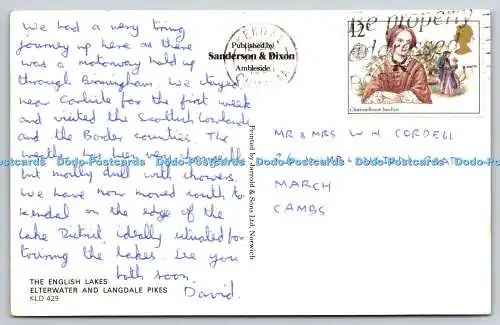 We had a very tiring
journey up here as there
was a motorway hold up
through Birmingham. We stayed
near Carlisle for the first week
and visited the Scottish Lowlands
and the Border counties. The
weather has been very
but mostly dull with showers.
We have now moved south to
Kendal on the edge of the
Lake District, ideally situated for
touring the lakes. See you
both soon.
David.
THE ENGLISH LAKES
ELTERWATER AND LANGDALE PIKES
KLD 429
Published by
Sanderson & Dixon
Ambleside
Printed by Jarrold & Sons Ltd, Norwich
KENDAL
be properly
addressed
12p
Charlotte Brontë Jane Eyre
MR & MRS W H CORDELL
MARCH
CAMBS
Dodo-Postcards Dodo-Postcards Dodo-Postcards Dodo-Postcards Dodo-Postcards